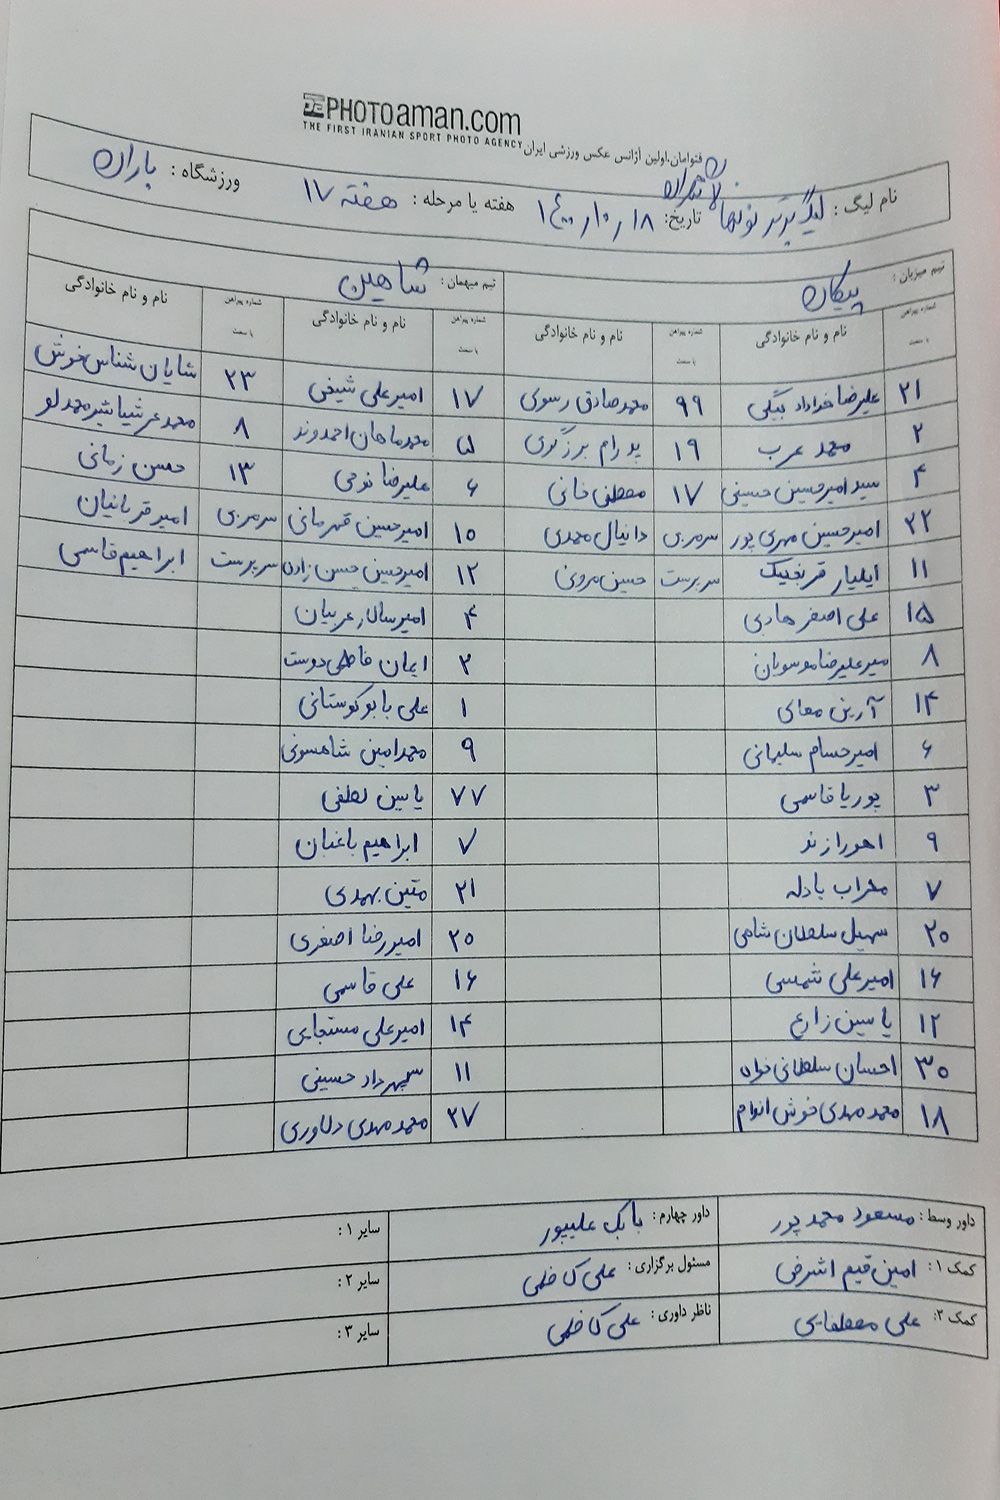 PHOTOaman.com
THE FIRST IRANIAN SPORT PHOTO AGENCY
فتوامان،اولین آژانس عکس ورزشی ایران
نام لیگ : لیگ برتر نونهالان تهران تاریخ: ۱۴۰۰/۱۰/۱۸ هفته یا مرحله : هفته ۱۷ ورزشگاه : باران
تیم میزبان : پیکان تیم میهمان : شاهین
شماره پیراهن یا سمت نام و نام خانوادگی شماره پیراهن یا سمت نام و نام خانوادگی شماره پیراهن یا سمت نام و نام خانوادگی شماره پیراهن یا سمت نام و نام خانوادگی
۲۱ علیرضا خداداد بیگی ۹۹ محمدصادق رسوی ۱۷ امیرعلی شیخی ۲۳ شایان شناس خوش
۲ محمد عرب ۱۹ پدرام برزگری ۵ محمدماهان احمدوند ۸ محمد عرشیا شیرمحمدلو
۴ سید امیرحسین حسینی ۱۷ مصطفی خانی ۶ علیرضا نوحی ۱۳ حسن زمانی
۲۲ امیرحسین مهری پور سرمربی دانیال محمدی ۱۰ امیرحسین قهرمانی سرمربی امیر قربانیان
۱۱ ایلیار قرنجیک سرپرست حسین مروتی ۱۲ امیرحسین حسن زاده سرپرست ابراهیم قاسمی
۱۵ علی اصغر هادیی ۴ امیرسالار عربیان
۸ میرعلیرضا موسویان ۲ ایمان فاطمی دوست
۱۴ آرین معالی ۱ علی بابوکوستانی
۶ امیرحسام سلیمانی ۹ محمدامین شاهسونی
۳ پوریا قاسمی ۷۷ یاسین لطفی
۹ اهورا زند ۷ ابراهیم باغبان
۷ مهراب یادله ۲۱ متین بهمدی
۲۰ سهیل سلطان شاهی ۲۰ امیررضا اصغری
۱۶ امیرعلی شمسی ۱۶ علی قاسمی
۱۲ یاسین زارع ۱۴ امیرعلی مستجابی
۳۰ احسان سلطانی خواه ۱۱ سپهرداد حسینی
۱۸ محمدمهدی خوش اندام ۲۷ محمدمهدی دلاوری
داور وسط : مسعود محمدپور داور چهارم : بابک علیپور سایر ۱ :
کمک ۱ : امین قیم اشرفی مسئول برگزاری : علی کاظمی سایر ۲ :
کمک ۲: علی مصطفایی ناظر داوری : علی کاظمی سایر ۳ :